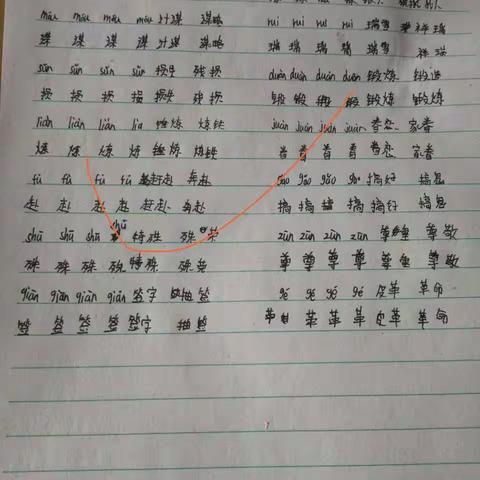 móu móu móu móu 计谋 谋略
谋 谋 谋 谋 计谋 谋略
sǔn sǔn sǔn sǔn 损 残损
损 损 损 损 损 残损
liàn liàn liàn lia 炼 炼铁
炼 炼 炼 炼 锤炼 炼铁
fù fù fù fù 赶赴 奔赴
赴 赴 赴 赴 赶赴 奔赴
shū shū shū shū 特殊 殊荣
殊 殊 殊 殊 特殊 殊荣
qiān qiān qiān qiān 签字 抽签
签 签 签 签 签字 抽签
ruì ruì ruì ruì 瑞雪 祥瑞
瑞 瑞 瑞 瑞 瑞雪 祥瑞
duàn duàn duàn duàn 锻炼 锻造
锻 锻 锻 锻 锻炼 锻炼
juàn juàn juàn juàn 眷恋 家眷
眷 眷 眷 眷 眷恋 家眷
gǎo gǎo gǎo gǎo 搞好 搞
搞 搞 搞 搞 搞好 搞
zūn zūn zūn zūn 尊 尊敬
尊 尊 尊 尊 尊 尊敬
gé gé gé gé 皮革 革命
革 革 革 革 皮革 革命